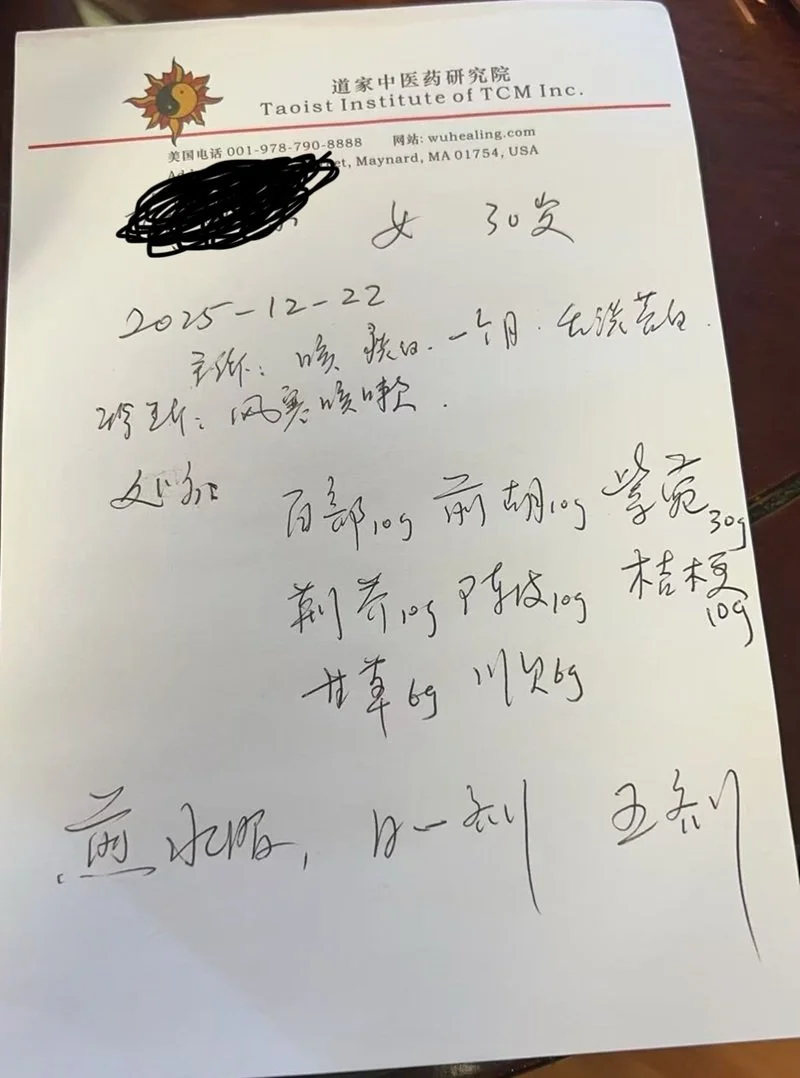 道家中医药研究院
Taoist Institute of TCM Inc.
美国电话 001-978-790-8888 网站: wuhealing.com
et, Maynard, MA 01754, USA
女 30岁
2025-12-22
主诉: 咳 痰白. 一个月. 舌淡苔白.
诊断: 风寒咳嗽.
处方: 百部10g 前胡10g 紫菀30g
荆芥10g 陈皮10g 桔梗10g
甘草6g 川贝6g
煎水服, 日一剂 五剂